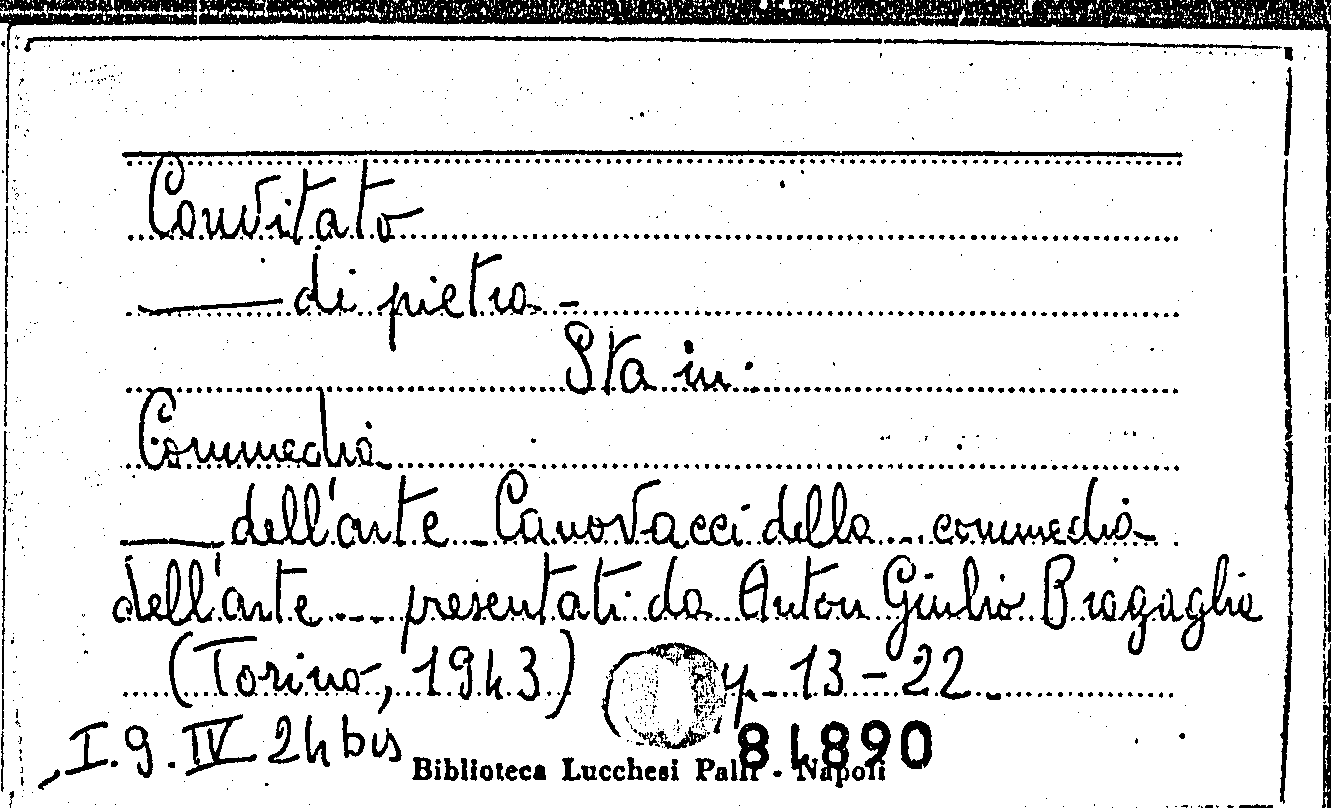 Convitato
—— di pietra -
Sta in:
Commedia
—— dell'arte - Canovacci della ... commedia
dell'arte ... presentati da Anton Giulio Bragaglia
(Torino, 1943) p. 13-22
I.9.IV 24 bis
81890
Biblioteca Lucchesi Palli - Napoli